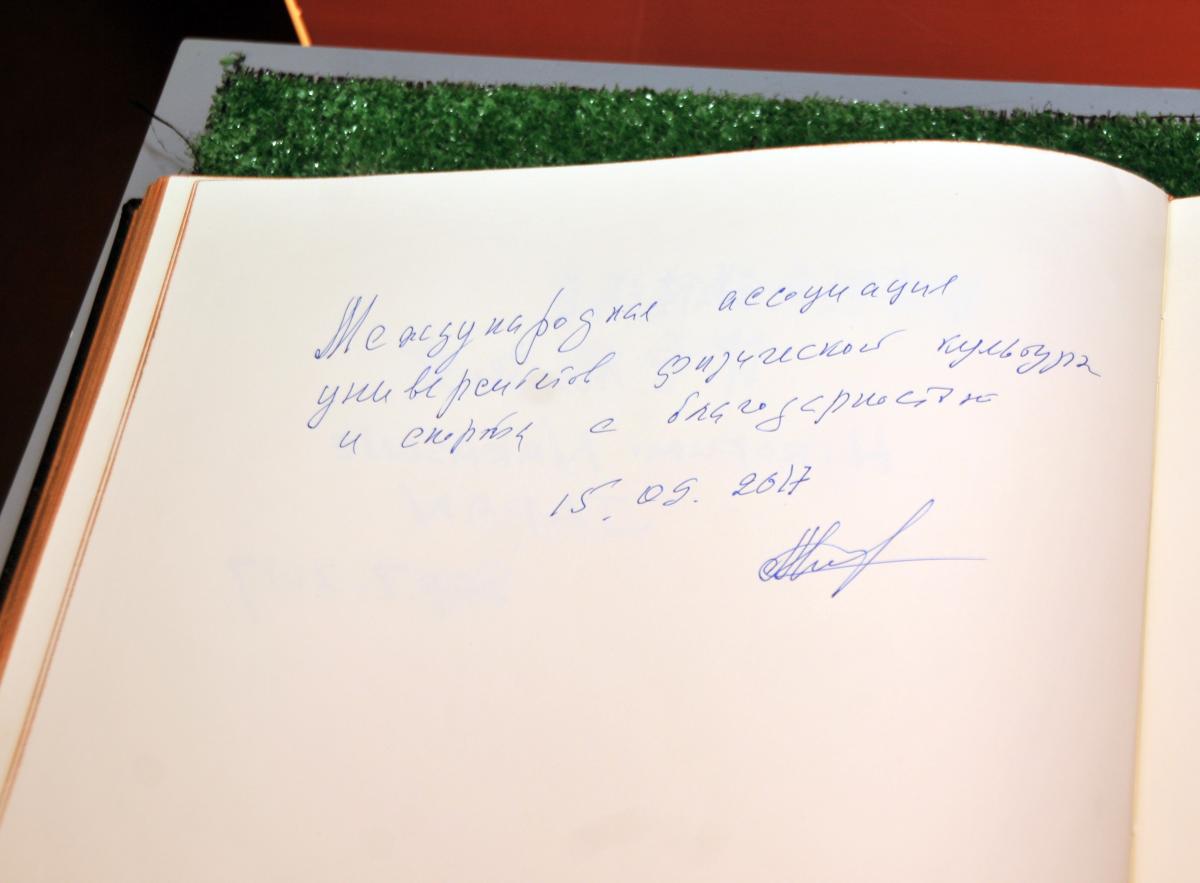 Международная ассоциация
университетов физической культуры
и спорта с благодарностью
15.09.2017